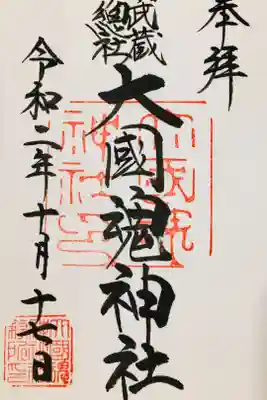 奉拝
武蔵
總社
大國魂神社
令和二年十月十七日